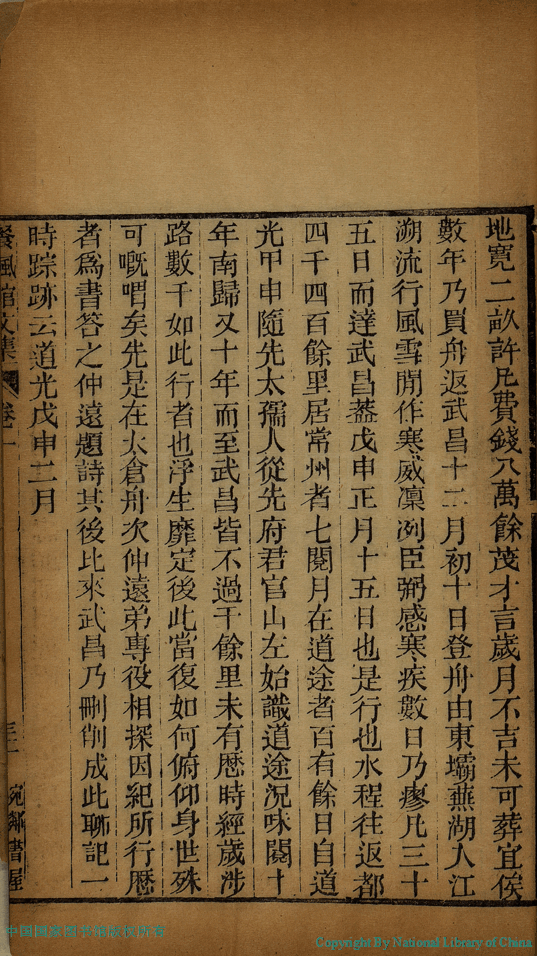 地寬二畝許凡費錢八萬餘茂才言歲月不吉未可葬宜俟
數年乃買舟返武昌十二月初十日登舟由東壩蕪湖入江
溯流行風雪閒作寒威凜冽臣弼感寒疾數日乃瘳凡三十
五日而達武昌蓋戊申正月十五日也是行也水程往返都
四千四百餘里居常州者七閱月在道途者百有餘日自道
光甲申隨先太孺人從先府君官山左始識道途況味閱十
年南歸又十年而至武昌皆不過千餘里未有歷時經歲涉
路數千如此行者也浮生靡定後此當復如何俯仰身世殊
可嘅喟矣先是在太倉舟次仲遠弟專役相探因紀所行歷
者為書答之仲遠題詩其後比來武昌乃刪削成此聊記一
時踪跡云道光戊申二月
餐風館文集 卷一 宛鄰書屋
中国国家图书馆版权所有
Copyright By National Library of China